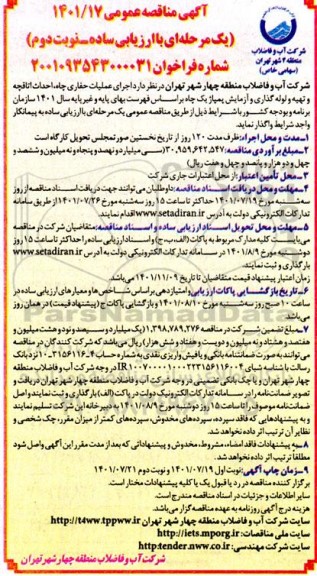 آگهی مناقصه عمومی ۱۴۰۱/۱۷
(یک مرحله‌ای با ارزیابی ساده-نوبت دوم)
شماره فراخوان ۲۰۰۱۰۹۳۵۴۳۰۰۰۰۳۱
شرکت آب و فاضلاب
منطقه ۴ شهر تهران
(سهامی خاص)
شرکت آب و فاضلاب منطقه چهار شهر تهران در نظر دارد اجرای عملیات حفاری چاه، احداث اتاقچه
و تهیه و لوله گذاری و آزمایش پمپاژ یک چاه بر اساس فهرست بهای پایه و غیر پایه سال ۱۴۰۱ سازمان
برنامه و بودجه کشور با شرایط ذیل از طریق مناقصه عمومی یک مرحله‌ای با ارزیابی ساده به پیمانکار
واجد شرایط واگذار نماید.
۱-مدت و محل اجرا: ظرف مدت ۱۲۰ روز از تاریخ نخستین صورتمجلس تحویل کارگاه است
۲-مبلغ برآوردی مناقصه: ۳۰,۹۵۹,۶۴۲,۵۴۷(سی میلیارد و نهصد و پنجاه و نه میلیون و ششصد و
چهل و دو هزار و پانصد و چهل و هفت ریال)
۳-محل تأمین اعتبار: از محل اعتبارات جاری شرکت
۴-مهلت و محل دریافت اسناد مناقصه: داوطلبان می‌توانند جهت دریافت اسناد مناقصه از روز
سه‌شنبه مورخ ۱۴۰۱/۰۷/۱۹ حداکثر تا ساعت ۱۵ روز سه‌شنبه مورخ ۱۴۰۱/۰۷/۲۶ از طریق سامانه
تدارکات الکترونیکی دولت به آدرس www.setadiran.ir اقدام نمایند.
۵-مهلت و محل تحویل اسناد ارزیابی ساده و اسناد مناقصه: متقاضیان شرکت در مناقصه
می‌بایست کلیه مدارک مربوط به پاکات (الف، ب، ج) و اسناد ارزیابی ساده را حداکثر تا ساعت ۱۵ روز
دوشنبه مورخ ۱۴۰۱/۸/۹ در سامانه تدارکات الکترونیکی دولت به آدرس www.setadiran.ir
بارگذاری و ثبت نمایند.
زمان اعتبار پیشنهاد قیمت متقاضیان تا تاریخ ۱۴۰۱/۱۱/۰۹ می‌باشد.
۶-تاریخ بازگشایی پاکات ارزیابی و امتیازدهی بر اساس شاخص‌ها و معیارهای ارزیابی ساده در
ساعت ۱۰ صبح روز سه‌شنبه مورخ ۱۴۰۱/۰۸/۱۰ و بازگشایی پاکات ج (پیشنهاد قیمت) در همان روز
می‌باشد.
۷-مبلغ تضمین شرکت در مناقصه ۱,۳۹۸,۷۸۹,۲۷۶(یک میلیارد و سیصد و نود و هشت میلیون و
هفتصد و هشتاد و نه میلیون و دویست و هفتاد و شش هزار) ریال می‌باشد که شرکت کنندگان در مناقصه
می‌توانند به صورت ضمانتنامه بانکی و یا فیش واریزی نقدی به شماره حساب
رسالت با شناسه شبای در وجه شرکت آب و فاضلاب منطقه
چهار شهر تهران و یا چک بانکی تضمینی در وجه شرکت آب و فاضلاب منطقه چهار شهر تهران دریافت و
تصویر ضمانت‌نامه را در سامانه تدارکات الکترونیک دولت در پاکت (الف) بارگذاری و ثبت نمایند و اصل
ضمانت‌نامه موصوف را تا ساعت ۱۵ روز دوشنبه مورخ ۱۴۰۱/۰۸/۰۹ به دبیرخانه این شرکت تسلیم نمایند
و به پیشنهادهایی که فاقد سپرده، سپرده‌های مخدوش، سپرده‌های کمتر از میزان مقرر، چک شخصی و
نظایر آن ترتیب اثر داده نخواهد شد.
۸-به پیشنهادات فاقد امضاء، مشروط، مخدوش و پیشنهاداتی که بعد از مدت مقرر این آگهی واصل شود
مطلقا ترتیب اثر داده نخواهد شد.
۹-زمان چاپ آگهی: نوبت اول ۱۴۰۱/۰۷/۱۹ و نوبت دوم ۱۴۰۱/۰۷/۲۱
برگزار کننده مناقصه در رد یا قبول یک یا کلیه پیشنهادات مختار است.
سایر اطلاعات و جزئیات در اسناد مناقصه مندرج است.
هزینه درج آگهی روزنامه به عهده مناقصه‌گزار می‌باشد.
سایت شرکت آب و فاضلاب منطقه چهار شهر تهران http://t4ww.tppww.ir
سایت ملی مناقصات: http://iets.mporg.ir
سایت شرکت مهندسی: http:tender.nww.co.ir
شرکت آب و فاضلاب منطقه چهار شهر تهران